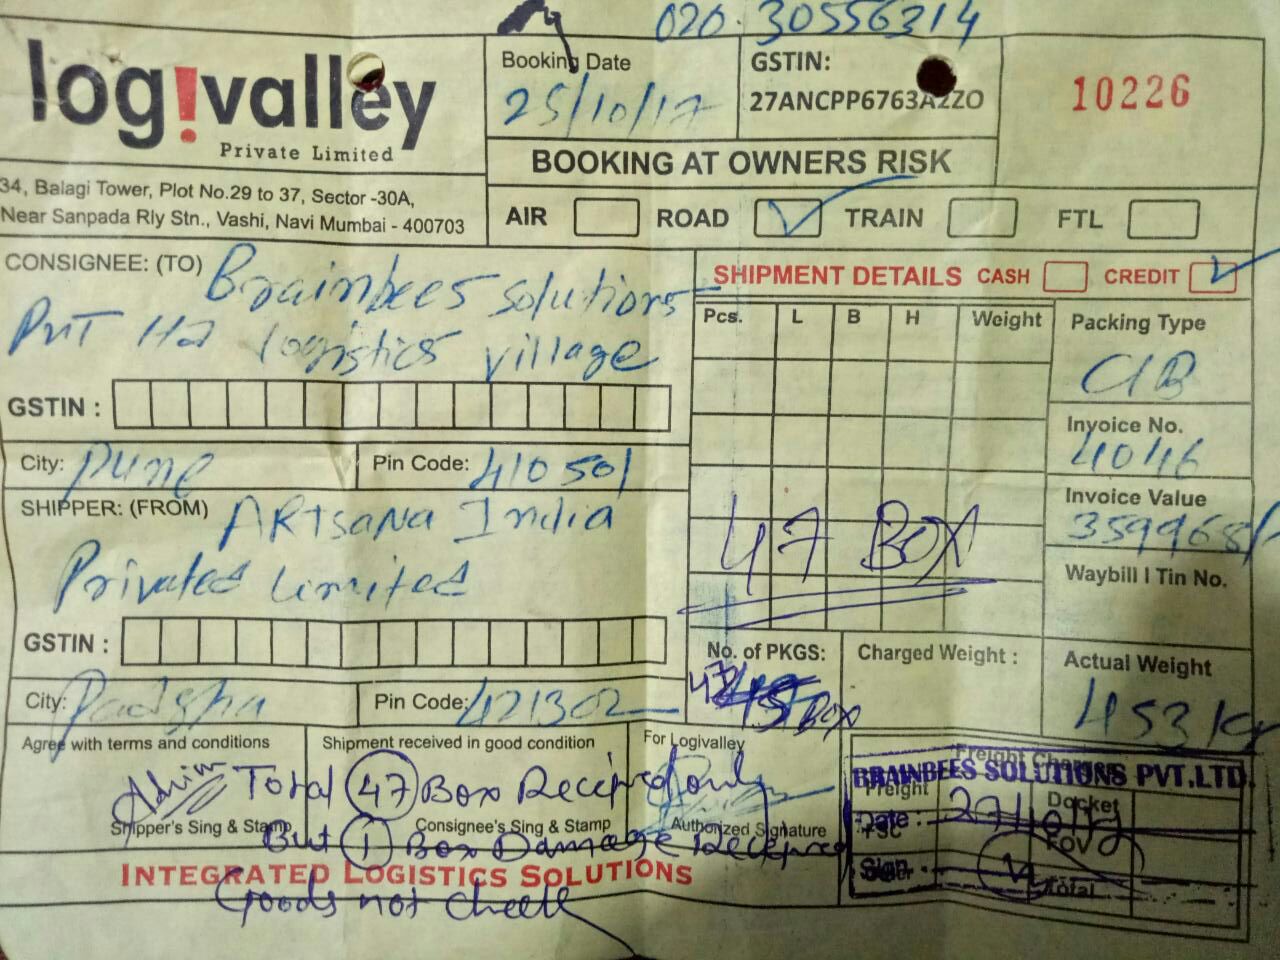 020.30556314
log!valley
Private Limited
34, Balagi Tower, Plot No.29 to 37, Sector -30A,
Near Sanpada Rly Stn., Vashi, Navi Mumbai - 400703
Booking Date
25/10/17
GSTIN:
27ANCPP6763A2ZO
10226
BOOKING AT OWNERS RISK
AIR ROAD TRAIN FTL
CONSIGNEE: (TO) Brainbees solutions
PvT H2 logistics village
GSTIN :
City: Pune Pin Code: 410501
SHIPPER: (FROM) ARtsana India
Privated Limited
GSTIN :
City: Pin Code: 421302
SHIPMENT DETAILS CASH CREDIT
Pcs. L B H Weight
47 BOX
Packing Type
C/B
Invoice No.
4046
Invoice Value
359968/-
Waybill I Tin No.
No. of PKGS:
47 BOX
Charged Weight :
Actual Weight
453 kg
Agree with terms and conditions
Shipper's Sing & Stamp
Shipment received in good condition
Consignee's Sing & Stamp
For Logivalley
Authorized Signature
Total 47 Box Recieved only
But 1 Box Damage Recieved
Goods not check
Freight Charges
Freight
FSC
Docket
FOV
Total
BRAINBEES SOLUTIONS PVT.LTD.
Date :
Sign.
INTEGRATED LOGISTICS SOLUTIONS